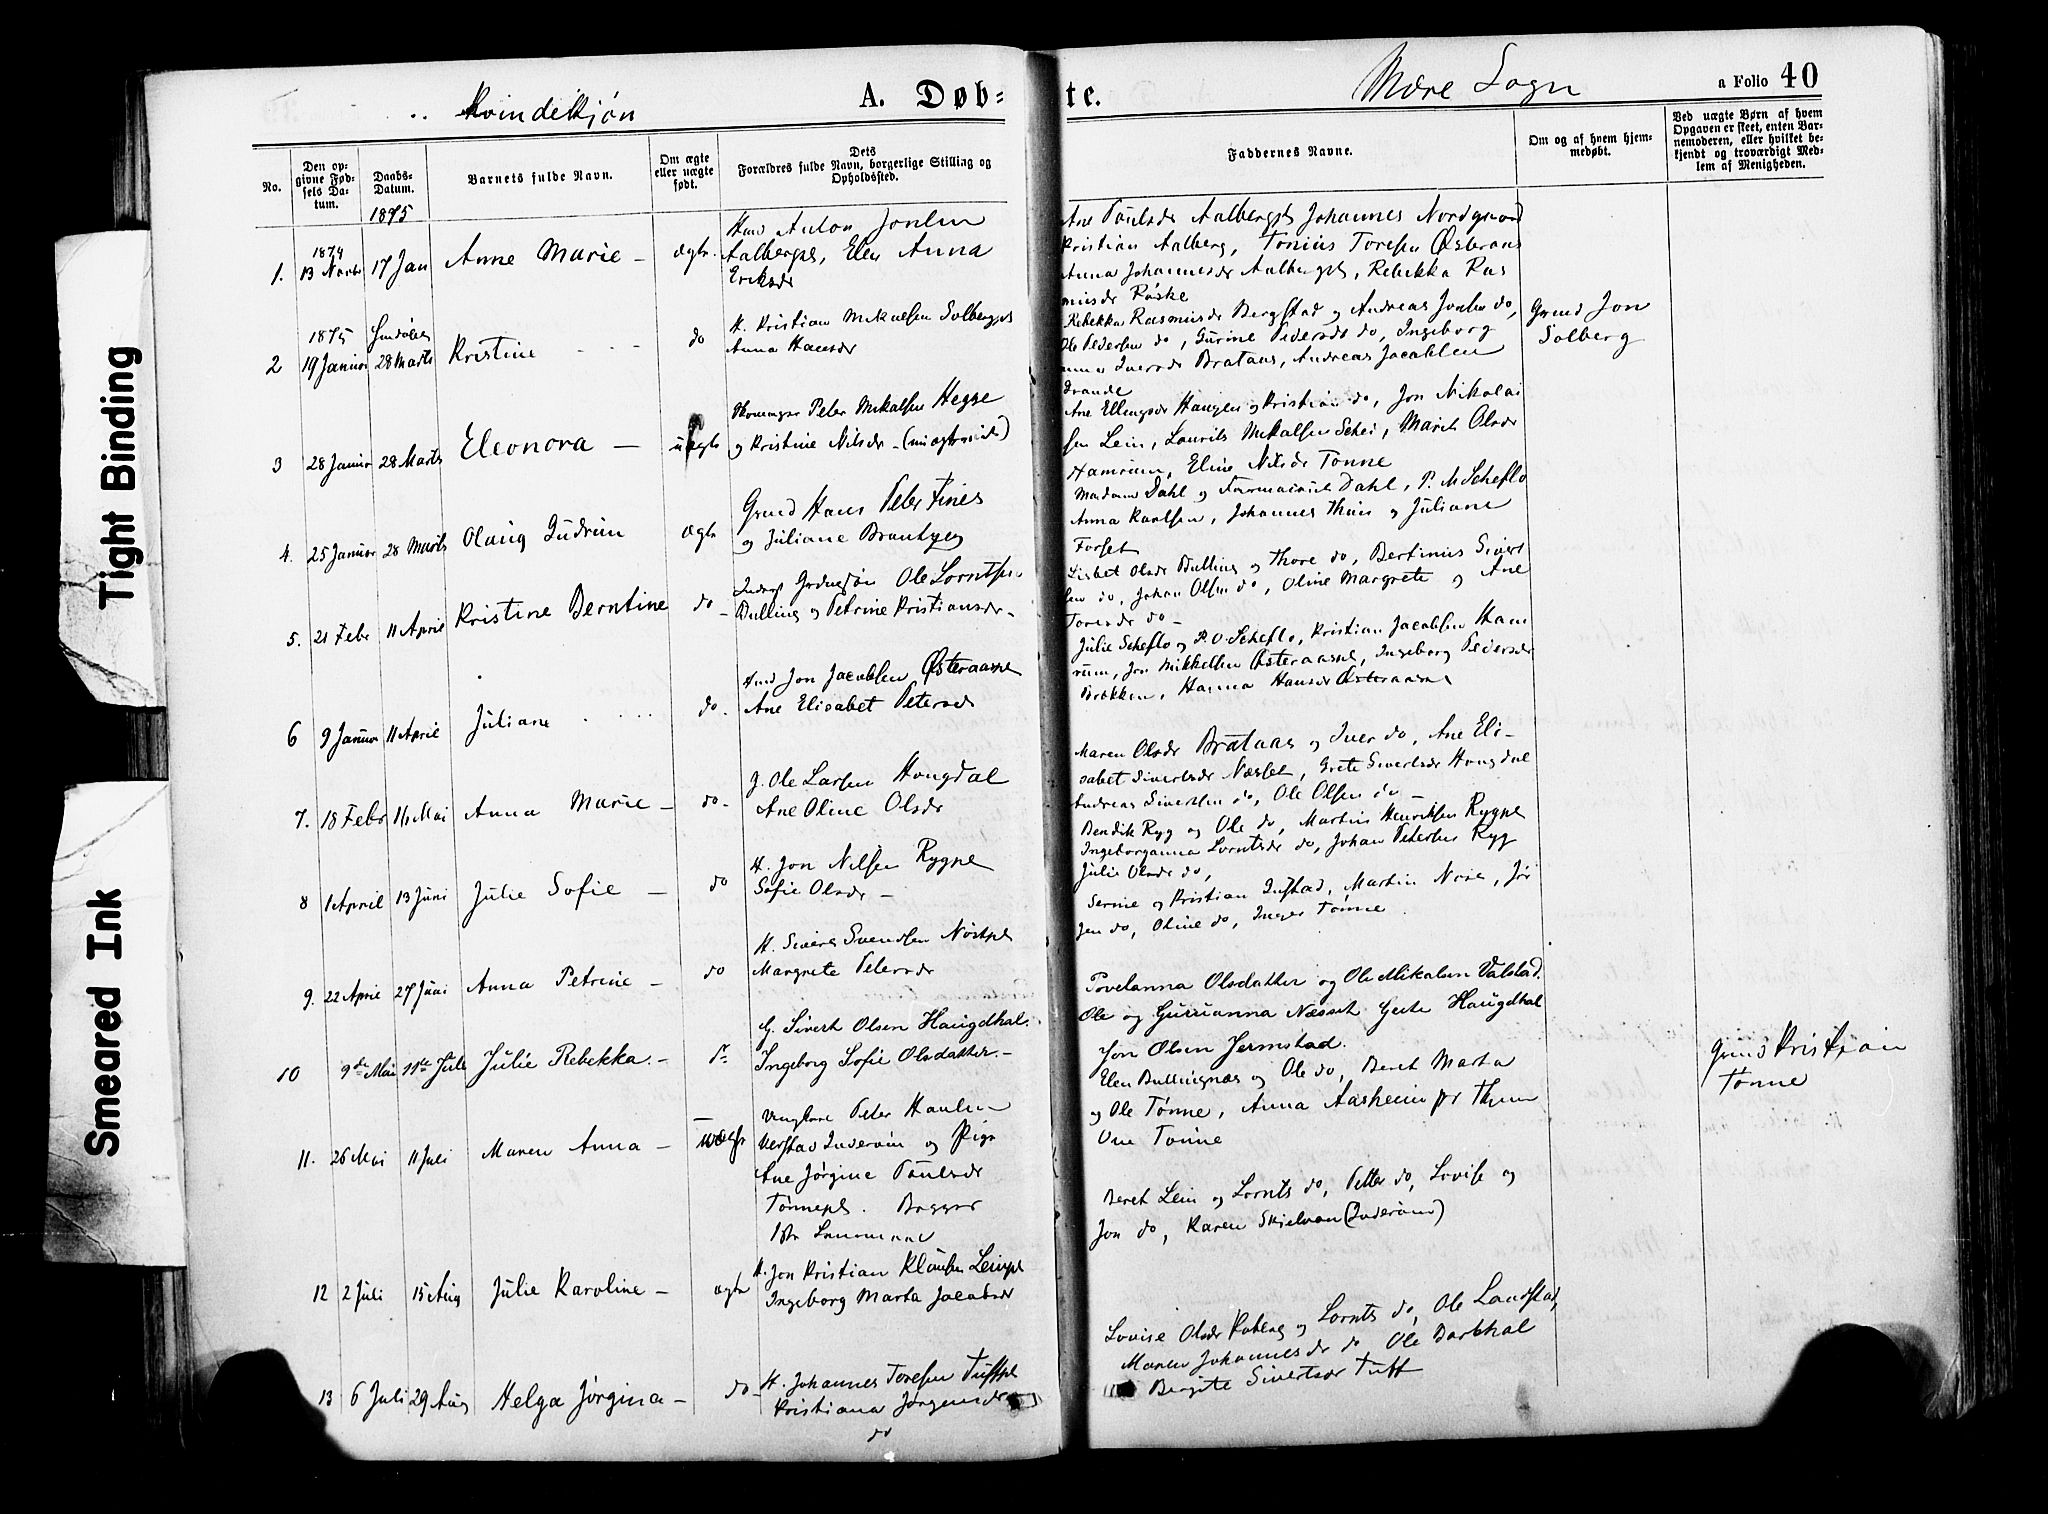 Tight Binding
Smeared Ink
Kvindekjøn
A. Døb=
te.
Mære Sogn
a Folio 40
No.
Den op-
givne Fød-
sels Da-
tum.
Daabs-
Datum.
Barnets fulde Navn.
Om ægte
eller uægte
født.
Dets
Forældres fulde Navn, borgerlige Stilling og
Opholdssted.
Faddernes Navne.
Om og af hvem hjem-
medøbt.
Ved uægte Børn af hvem
Opgaven er skeet, enten Bar-
nemoderen, eller hvilket be-
kjendt og troværdigt Med-
lem af Menigheden.
1875
1874
1. 13 Novbr 17 Jan Anne Marie — ægte.
Anton
Aalbergpl, Elen Anna
Eriksdr
Ane Paulsdr Aalbergpl Johannes Nordgaard
Kristian Aalberg, Tonius Toresen Østeraas
Anna Johannesdr Aalbergpl, Rebekka Ras
musdr Røske
1875
2 19 Januar 28 Marts Kristine do
H. Kristian Mikalsen Solbergpl
Anna Hansdr
Rebekka Rasmusdr Bergstad og Andreas do,
Ole Pedersen do, Gurine Pedersdr do, Ingeborg
Iversdr Brataas, Andreas Jacobsen
Grund Jon
Solberg
3 28 Januar 28 Marts Eleonora — uægte
Peter Mikalsen Hegge
og Kristine Nilsdr
Ane Ellingsdr Haugen og Kristian do, Jon Nikolai
sen Lein, Laurits Mikalsen Schei, Marit Olsdr
Hamrum, Eline Nilsdr Tønne
4. 25 Januar 28 Marts Olaug Gudrun ægte
Grund Hans Peter Fines
og Juliane
Madam Dahl og Dahl, P. M Scheflo
Anna Karlsen, Johannes og Juliane
Forset
5. 21 Febr 11 April Kristine Berntine do
Ole Lorntsen
Bulling og Petrine Kristiansdr —
Lisbet Olsdr Bulling og Thore do, Bertinus Sivert
sen do, Johan Olsen do, Oline Margrete og Ane
Toresdr do —
6 9 Januar 11 April Juliane do.
Jon Jacobsen Østeraaspl
Ane Elisabet Petersdr
Julie Scheflo og P. O. Scheflo, Kristian Jacobsen Ham
rum, Jon Mikkelsen Østeraaspl, Ingeborg Pedersdr
Brækken, Hanna Hansdr Østeraas
7. 18 Febr 16 Mai Anna Marie — do —
G. Ole Larsen Hougdal
Ane Oline Olsdr
Maren Olsdr Brataas og Iver do, Ane Eli-
sabet Sivertsdr Næsset, Grete Sivertsdr Hougdal
Andreas Sivertsen do, Ole Olsen do —
8 1 April 13 Juni Julie Sofie — do
H. Jon Nilsen Rygpl
Sofie Olsdr —
Bendik Ryg og Ole do, Martin Henriksen Rygpl
Ingeborganna Lorntsdr do, Johan Petersen Ryg
Julie Olsdr do,
9. 22 April 27 Juni Anna Petrine — do
H. Sivert Svendsen
Margrete Petersdr
Serine og Kristian Infstad, Martin
do, Oline do, Inger Tønne.
10 9de Mai 11te Juli Julie Rebekka. —
G. Sivert Olsen Haugdhal.
Ingeborg Sofie Olsdatter. —
Povelanna Olsdatter og Ole Mikalsen Valstad.
Ole og Gurianna Næsset Grete Haugdhal
Jon Olsen Jermstad.
11. 26 Mai 11 Juli Maren Anna — uægte
Ungkarl Peter
Inderøen og Pige
Ane Jørgine Paulsdr
Tønnepl.
Elen Bullingnæs og Ole do, Beret Marta
og Ole Tønne, Anna Aasheim
Tønne
Grund Kristian
Tønne
12 2 Juli 15 Aug Julie Karoline — ægte
H. Jon Kristian Leinpl
Ingeborg Marta Jacobsdr
Beret Lein og Lornts do, Petter do, Lovise og
Jon do, Karen Skjelvan (Inderøen)
13 6 Juli 29 Aug Helga Jørgina — do —
H. Johannes Toresen Tuftpl
Kristiana Jørgensdr
do
Lovise Olsdr og Lornts do, Ole Landstad,
Maren Johannesdr do Ole Dorthal
Birgite Sivertsdr Tuft